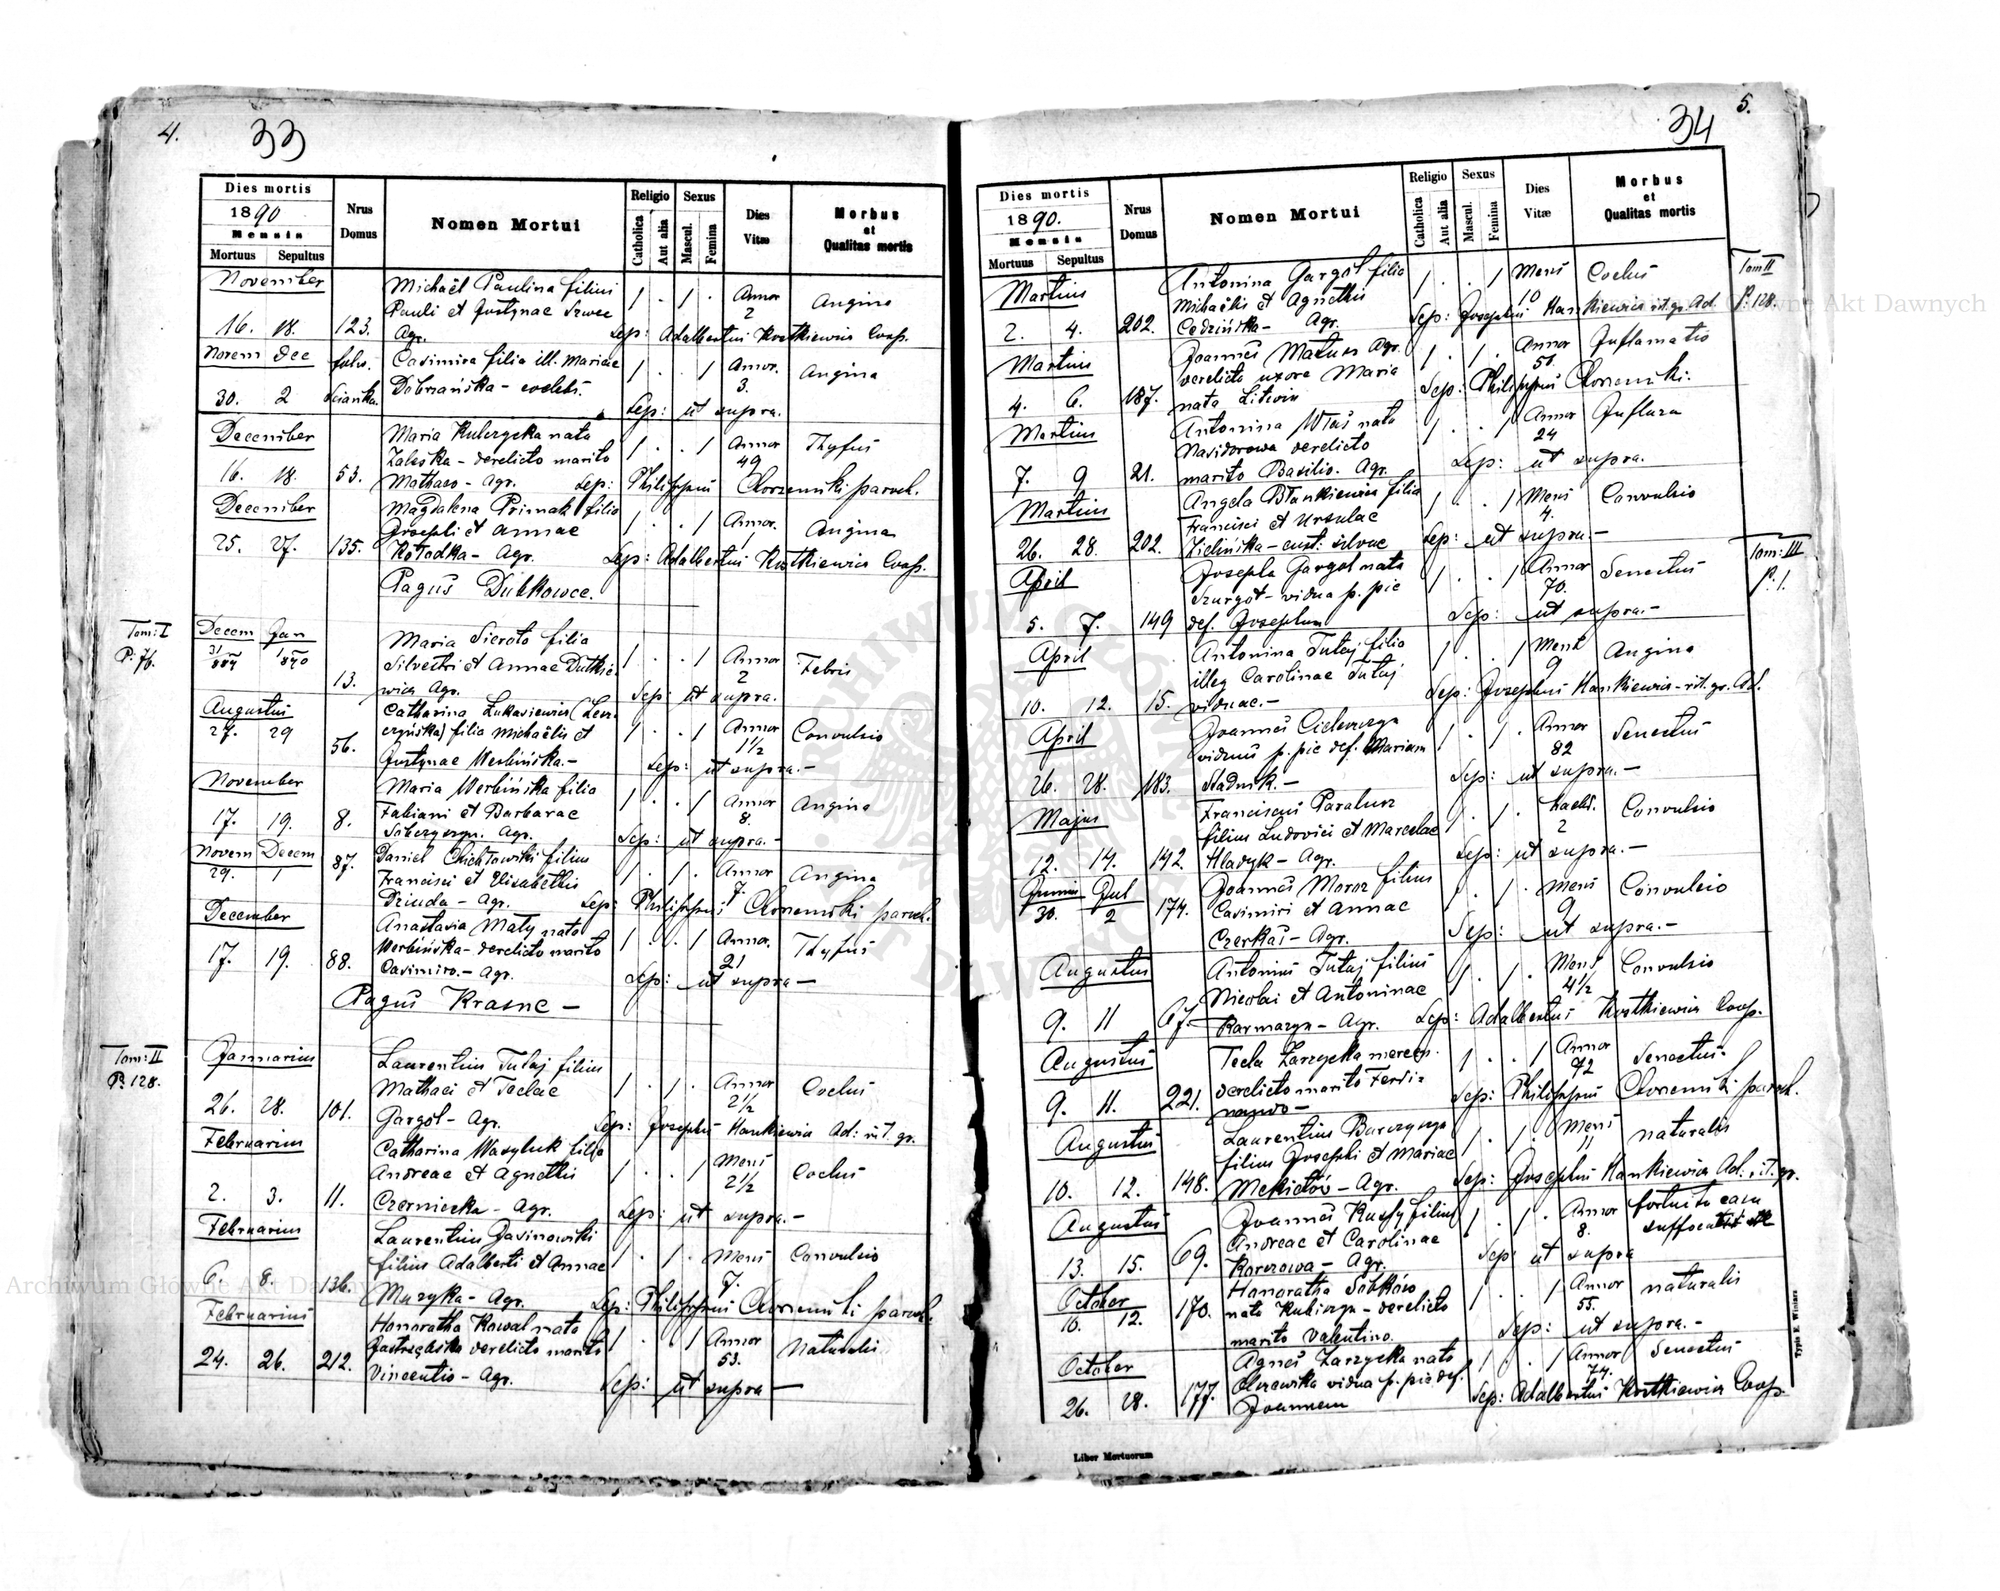 4.
33
Dies mortis
1890
Mensis
Mortuus Sepultus
Nrus Domus
Nomen Mortui
Religio
Catholica
Aut alia
Sexus
Mascul.
Femina
Dies Vitæ
Morbus et Qualitas mortis
November
Michaël Paulina filius
Pauli et Justynae Szwec
16. 18. 123. Agr.
1 . 1 . Annor 2 Angina
Sep: Adalbertus Kostkiewicz Coop.
Novem Dec
Casimira filia ill. Mariae
30. 2
Dobrzańska - coelebs.
1 . . 1 Annor. 3. Angina
Sep: ut supra.
December
Maria Kulczycka nata
Zaleska - derelicto marito
16. 18. 53. Mathaeo - Agr.
1 . . 1 Annor 49 Thyfus
Sep: Philippus paroch.
December
Magdalena Primak filia
Josephi et Annae
25. 27. 135. Kołodka - Agr.
1 . . 1 Annor. 1 Angina
Sep: Adalbertus Kostkiewicz Coop.
Pagus Dubkowce.
Tom: I
P. 76.
Decem Jan
31/889 1/890
13.
Maria Sieroto filia
Silvestri et Annae Dutkie-
wicz Agr.
1 . . 1 Annor 2 Febris
Sep: ut supra.
Augustus
27. 29
56.
Catharina Łukasiewicz
filia Michaëlis et
Justynae Werbińska. -
1 . . 1 Annor 1½ Convulsio
Sep: ut supra. -
November
17. 19. 8.
Maria Werbińska filia
Fabiani et Barbarae
Agr.
1 . . 1 Annor 8. Angina
Sep: ut supra. -
Novem Decem
29. 1 87.
Daniel filius
Francisci et Elisabethis
Dziuda - Agr.
1 . 1 . Annor 7. Angina
Sep: Philippus paroch.
December
17. 19. 88.
Anastasia Mały nata
Werbińska - derelicto marito
Casimiro. - Agr.
1 . . 1 Annor. 21 Thyfus
Sep: ut supra -
Pagus Krasne -
Tom: II
P. 128.
Januarius
26. 28. 101.
Laurentius Tutaj filius
Mathaei et Teclae
Gargol - Agr.
1 . 1 . Annor 2½ Coclus
Sep: Josephus Hankiewicz Ad: rit. gr.
Februarius
2. 3. 11.
Catharina Wasyluk filia
Andreae et Agnethis
Czerniecka - Agr.
1 . . 1 Mens 2½ Coclus
Sep: ut supra. -
Februarius
6. 8. 136.
Laurentius
filius Adalberti et Annae
Muzyka - Agr.
1 . 1 . Mens 7. Convulsio
Sep: Philippus paroch.
Februarius
24. 26. 212.
Honoratha Kowal nata
derelicto marito
Vincentio - Agr.
1 . . 1 Annor 53. Naturalis
Sep: ut supra -
5.
34
Dies mortis
1890.
Mensis
Mortuus Sepultus
Nrus Domus
Nomen Mortui
Religio
Catholica
Aut alia
Sexus
Mascul.
Femina
Dies Vitæ
Morbus et Qualitas mortis
Tom II
P. 128.
Martius
2. 4. 202.
Antonina Gargol filia
Michaëlis et Agnethis
Cedzińska - Agr.
1 . . 1 Mens 10 Coclus
Sep: Josephus Hankiewicz rit. gr. Ad.
Martius
4. 6. 187.
Joannes Matusz Agr.
derelicta uxore Maria
nata Litwin
1 . 1 . Annor 51. Inflamatio
Sep: Philippus
Martius
7. 9 21.
Antonina Wlas nata
derelicto
marito Basilio. Agr.
1 . . 1 Annor 24
Sep: ut supra.
Martius
26. 28. 202.
Angela filia
Francisci et Ursulae
Zielińska - cust: silvae
1 . . 1 Mens 4. Convulsio
Sep: ut supra. -
Tom: III
P. 1.
April
5. 7. 149
Josepha Gargol nata
Szurgot - vidua p. pie
def. Josephum
1 . . 1 Annor 70. Senectus
Sep: ut supra. -
April
10. 12. 15.
Antonina Tutaj filia
illeg Carolinae Tutaj
viduae. -
1 . . 1 Mens 9 Angina
Sep: Josephus Hankiewicz - rit. gr. Ad.
April
26. 28. 183.
Joannes
viduus p. pie def. Mariam
Stadnik. -
1 . 1 . Annor 82 Senectus
Sep: ut supra. -
Majus
12. 14. 142
Franciscus Paralusz
filius Ludovici et Marcelae
Hladyk - Agr.
1 . 1 . 2 Convulsio
Sep: ut supra. -
Junius Jul
30. 2 174.
Joannes Moroz filius
Casimiri et Annae
Czerkas - Agr.
1 . 1 . Mens 9 Convulsio
Sep: ut supra. -
Augustus
9. 11 67.
Antonius Tutaj filius
Nicolai et Antoninae
Karmazyn - Agr.
1 . 1 . Mens 4½ Convulsio
Sep: Adalbertus Kostkiewicz Coop.
Augustus
9. 11. 221.
Tecla Zarzycka
derelicto marito Ferdi-
nando -
1 . . 1 Annor 72 Senectus.
Sep: Philippus paroch.
Augustus
10. 12. 148.
Laurentius
filius Josephi et Mariae
Agr.
1 . 1 . Mens 11 naturalis
Sep: Josephus Hankiewicz Ad: rit. gr.
Augustus
13. 15. 69.
Joannes filius
Andreae et Carolinae
Agr.
1 . 1 . Annor 8. fortuito casu
Sep: ut supra
October
10. 12. 170.
Honoratha
nata derelicto
marito Valentino.
1 . . 1 Annor 55. naturalis
Sep: ut supra. -
October
26. 28. 177.
Agnes Zarzycka nata
vidua p. pie def.
Joannem
1 . . 1 Annor 74. Senectus
Sep: Adalbertus Kostkiewicz Coop.
Liber Mortuorum
Typis E. Winiarz
Archiwum Główne Akt Dawnych